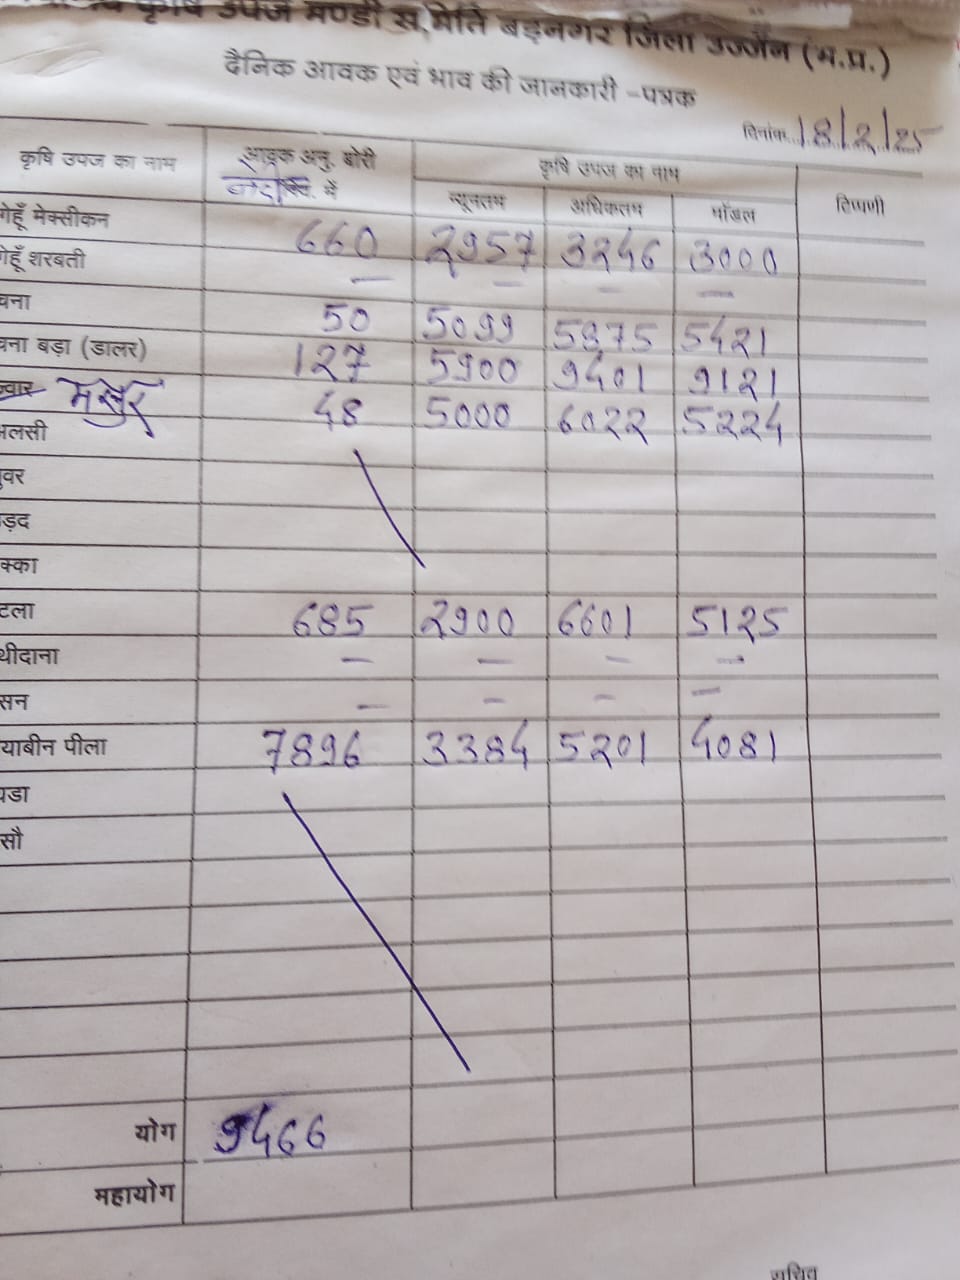 कृषि उपज मण्डी समिति बड़नगर जिला उज्जैन (म.प्र.)
दैनिक आवक एवं भाव की जानकारी -पत्रक
दिनांक...18/2/25
कृषि उपज का नाम आवक अनु. बोरी क्विं. में कृषि उपज का नाम टिप्पणी
न्यूनतम अधिकतम मॉडल
गेहूँ मेक्सीकन 660 2957 3246 3000
गेहूँ शरबती — — — —
चना 50 5099 5875 5421
चना बड़ा (डालर) 127 5900 9401 9121
ज्वार मसुर 48 5000 6022 5224
अलसी
वर
ड़द
क्का
टला 685 2900 6601 5125
थीदाना — — — —
सन — — — —
याबीन पीला 7896 3384 5201 4081
डा
सौ
योग 9466
महायोग
सचिव